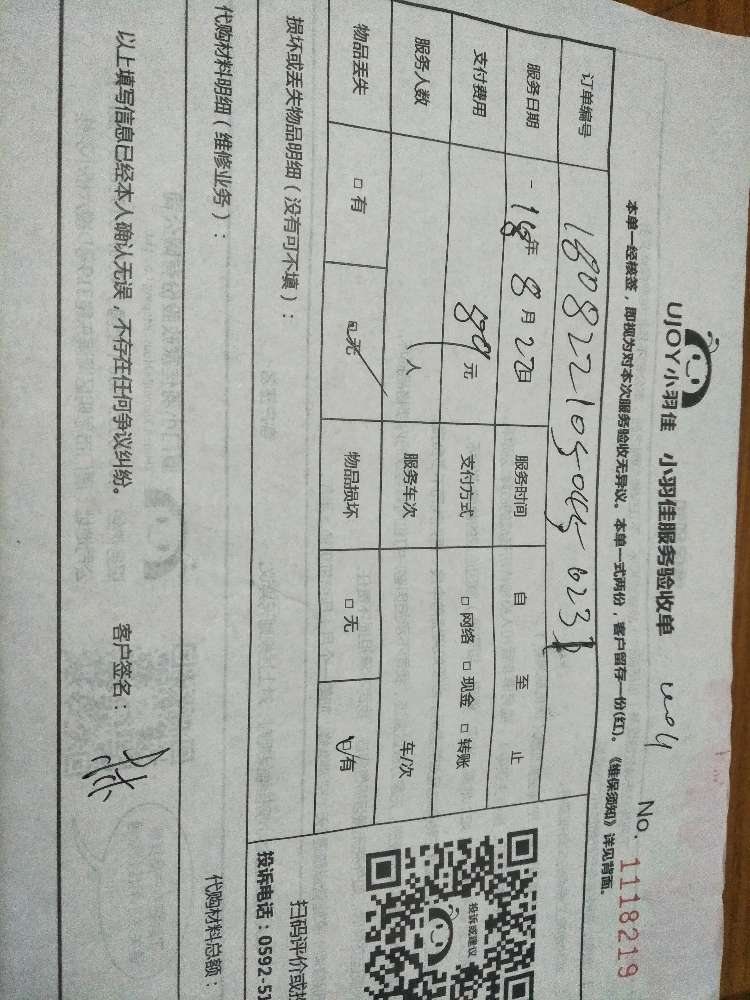 UJOY小羽佳 小羽佳服务验收单
No. 1118219
本单一经核签，即视为对本次服务验收无异议。本单一式两份，客户留存一份(红)。《维保须知》详见背面。
订单编号
服务日期 18年 8月 22日 服务时间 自 至 止
支付费用 元 支付方式 □ 网络 □ 现金 □ 转账
服务人数 人 服务车次 车/次
物品丢失 □ 有 □ 无 物品损坏 □ 无 □ 有
损坏或丢失物品明细（没有可不填）：
代购材料明细（维修业务）：
代购材料总额：
以上填写信息已经本人确认无误，不存在任何争议纠纷。 客户签名：
投诉或建议
扫码评价或
投诉电话：0592-51